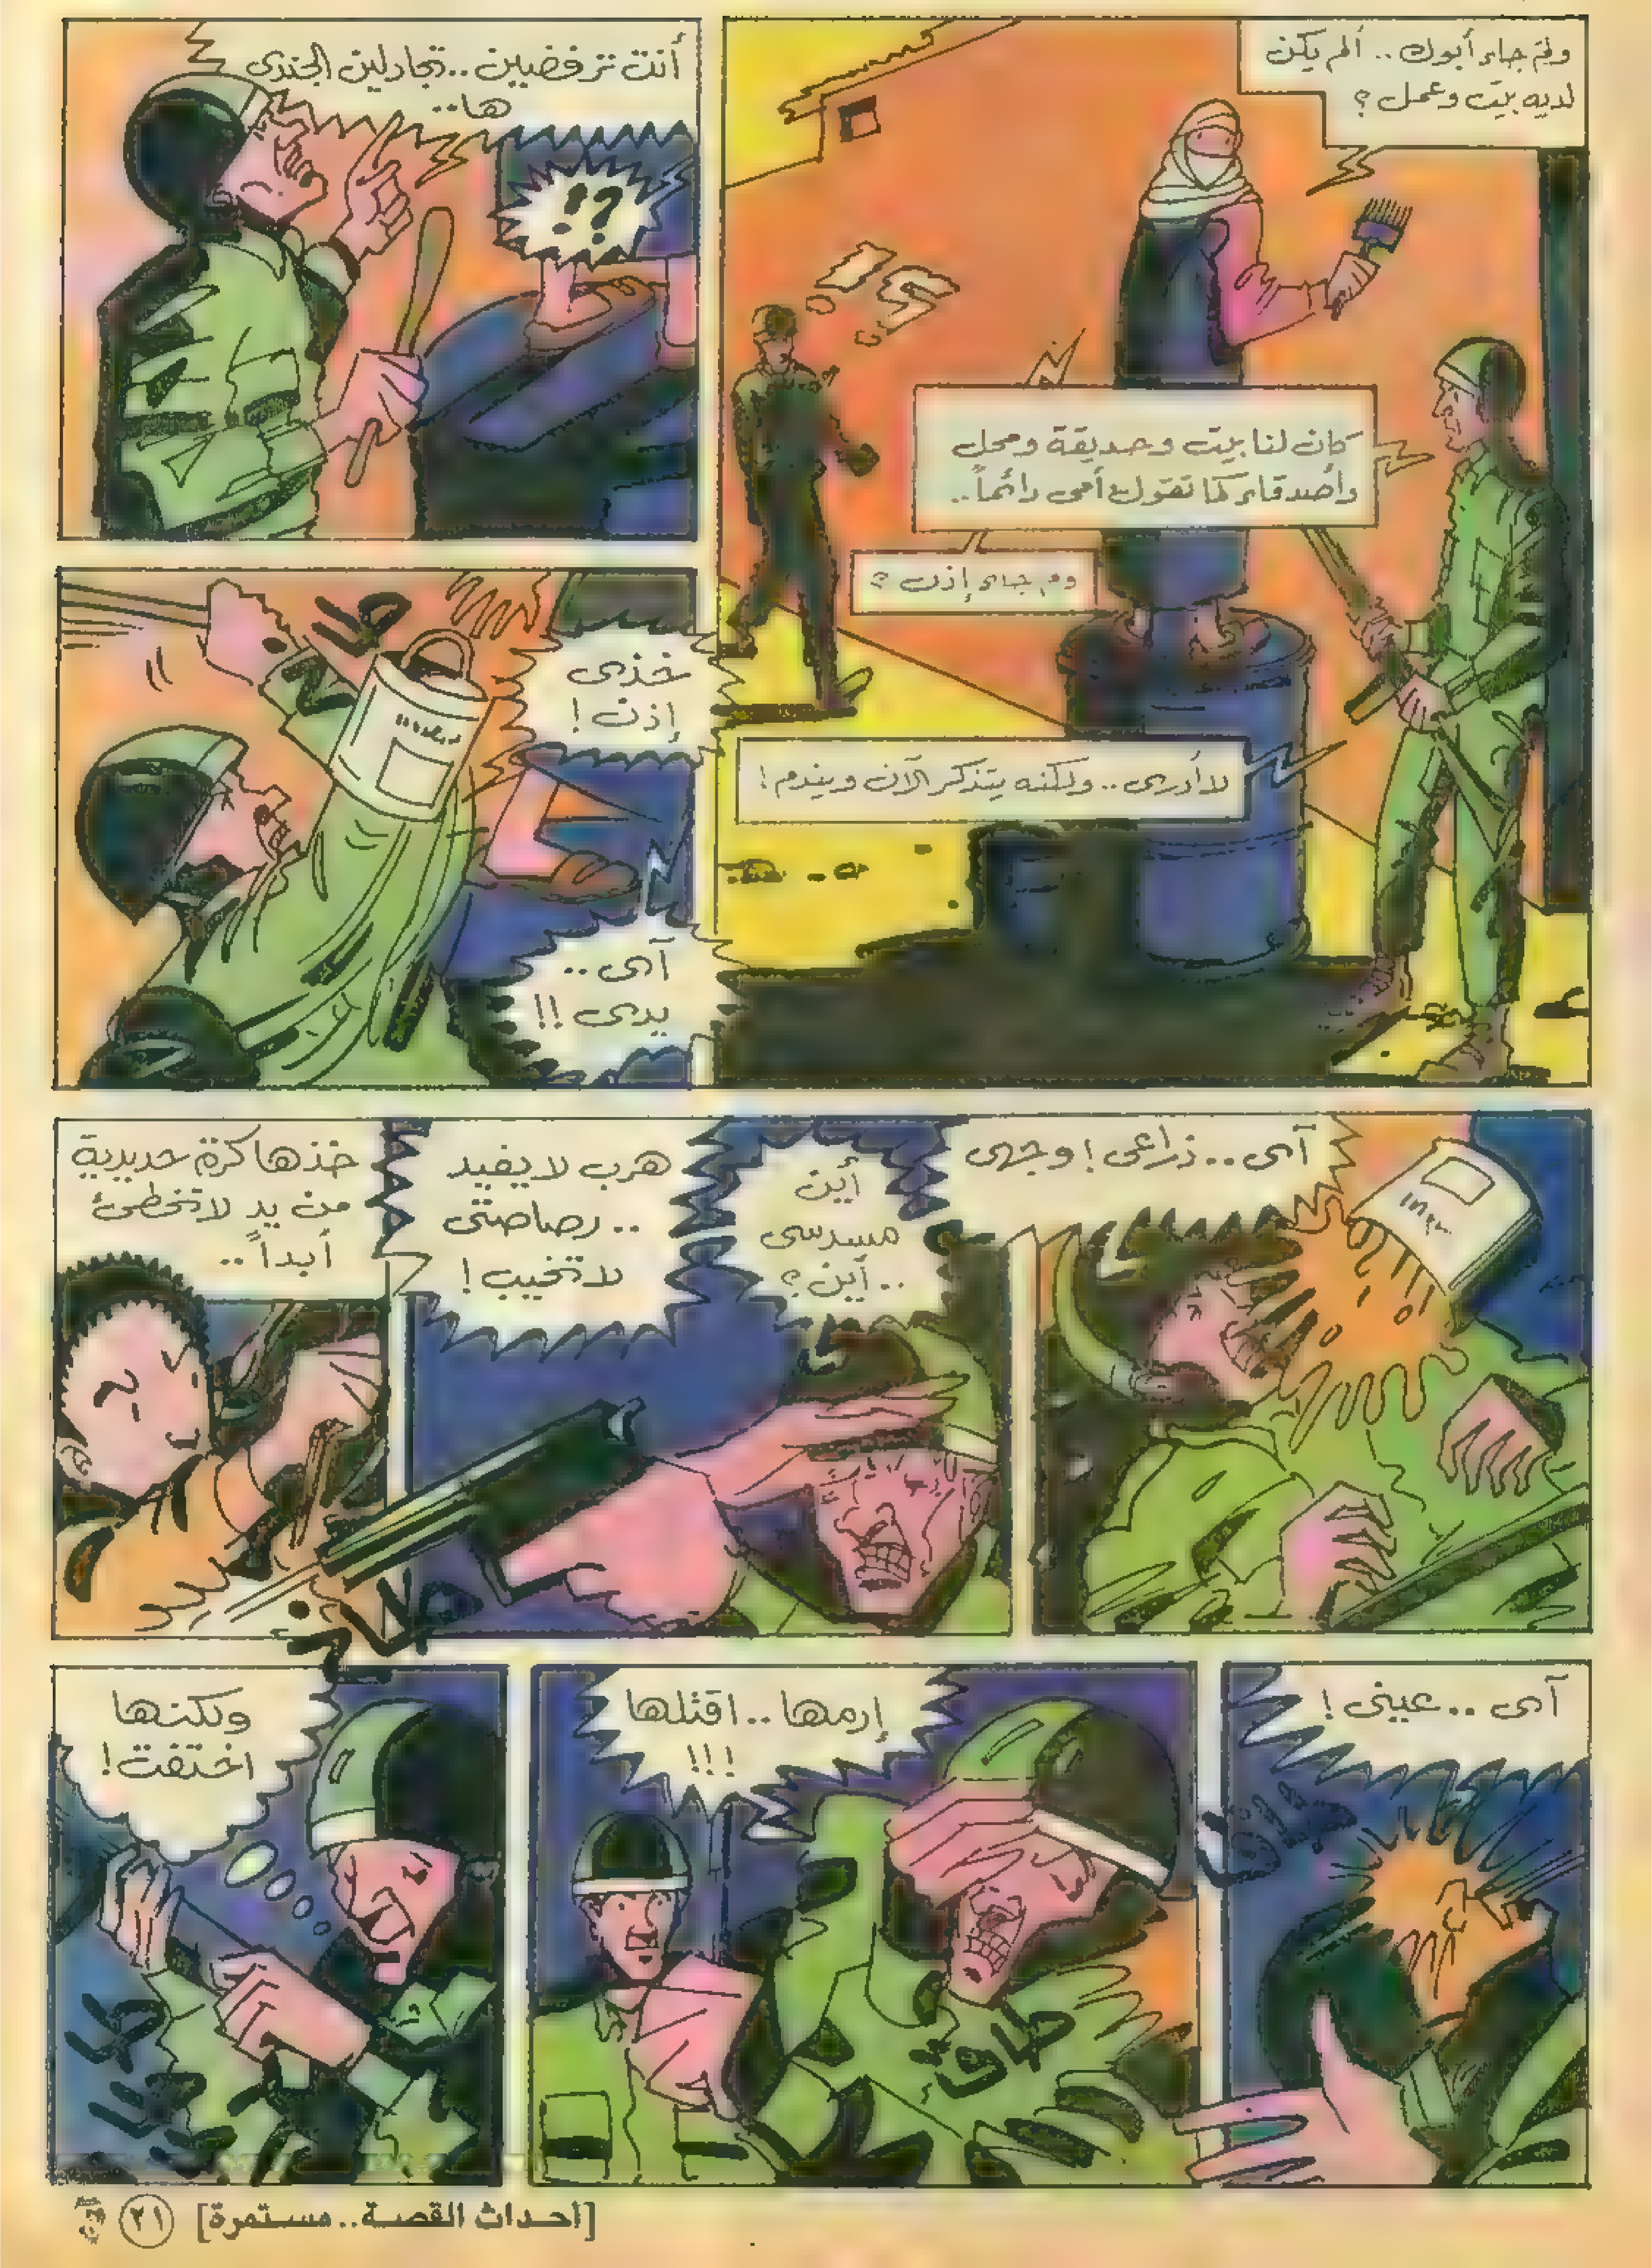 ولم جاء أبوك.. ألم يكن
لديه بيت وعمل؟
!؟
كان لنا بيت وحديقة ومحل
وأصدقاء كما تقول أمى دائماً..
ولم جاء إذن؟
لا أدرى.. ولكنه يتذكر الآن ويندم!
أنت ترفضين.. تجادلين الجندى
ها..
!؟
خذى
إذن!
آى..
يدى!!
آى.. ذراعى! وجهى
أين
مسدسى
.. أين؟
هرب لا يفيد
.. رصاصتى
لا تخيب!
خذها كرة حديدية
من يد لا تخطئ
أبداً..
آى.. عينى!
إرمها.. اقتلها
!!!
طاق
ولكنها
اختفت!
[أحداث القصة.. مستمرة]
٢١